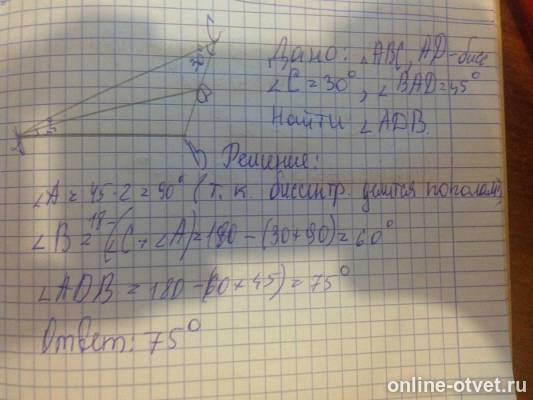 Дано: △ABC, AD-бисс
∠C=30°, ∠BAD=45°
Найти ∠ADB.
Решение:
∠A=45·2=90° (т.к. биссектр. делится пополам)
∠B=18-(∠C+∠A)=180-(30+90)=60°
∠ADB=180-(60+45)=75°
Ответ: 75°
online-otvet.ru